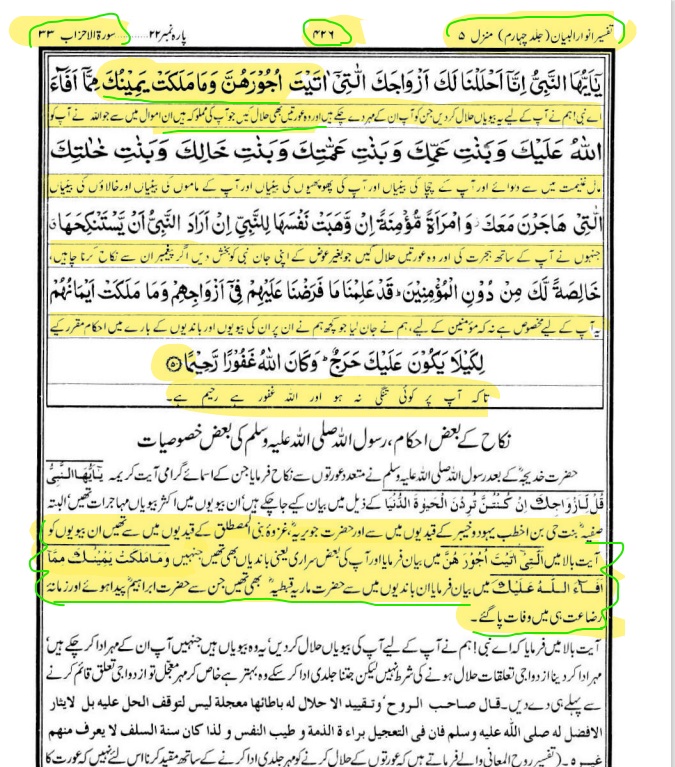 تفسیر انوار البیان (جلد چہارم) منزل ۵ ۴۲۶ پارہ نمبر ۲۲ ......... سورۃ الاحزاب ۳۳
يٰۤاَيُّهَا النَّبِيُّ اِنَّاۤ اَحْلَلْنَا لَكَ اَزْوَاجَكَ الّٰتِيْۤ اٰتَيْتَ اُجُوْرَهُنَّ وَمَا مَلَكَتْ يَمِيْنُكَ مِمَّاۤ اَفَآءَ
اے نبی! ہم نے آپ کے لیے یہ بیویاں حلال کردیں جن کو آپ ان کے مہر دے چکے ہیں اور وہ عورتیں بھی حلال کیں جو آپ کی مملوکہ ہیں ان اموال میں سے جو اللہ نے آپ کو
اللّٰهُ عَلَيْكَ وَبَنٰتِ عَمِّكَ وَبَنٰتِ عَمّٰتِكَ وَبَنٰتِ خَالِكَ وَبَنٰتِ خٰلٰتِكَ
مال غنیمت میں سے دلوائے اور آپ کے چچا کی بیٹیاں اور آپ کی پھوپھیوں کی بیٹیاں اور آپ کے ماموں کی بیٹیاں اور خالاؤں کی بیٹیاں
الّٰتِيْ هَاجَرْنَ مَعَكَ وَامْرَاَةً مُّؤْمِنَةً اِنْ وَّهَبَتْ نَفْسَهَا لِلنَّبِيِّ اِنْ اَرَادَ النَّبِيُّ اَنْ يَّسْتَنْكِحَهَا
جنہوں نے آپ کے ساتھ ہجرت کی اور وہ عورتیں حلال کیں جو بغیر عوض کے اپنی جان نبی کو بخش دیں اگر پیغمبر ان سے نکاح کرنا چاہیں،
خَالِصَةً لَّكَ مِنْ دُوْنِ الْمُؤْمِنِيْنَ ؕ قَدْ عَلِمْنَا مَا فَرَضْنَا عَلَيْهِمْ فِيْۤ اَزْوَاجِهِمْ وَمَا مَلَكَتْ اَيْمَانُهُمْ
یہ آپ کے لیے مخصوص ہے نہ کہ مؤمنین کے لیے، ہم نے جان لیا جو کچھ ہم نے ان پر ان کی بیویوں اور باندیوں کے بارے میں احکام مقرر کیے
لِكَيْلَا يَكُوْنَ عَلَيْكَ حَرَجٌ ؕ وَكَانَ اللّٰهُ غَفُوْرًا رَّحِيْمًا ۝۵۰
تاکہ آپ پر کوئی تنگی نہ ہو اور اللہ غفور ہے رحیم ہے۔
نکاح کے بعض احکام، رسول اللہ صلی اللہ علیہ وسلم کی بعض خصوصیات
حضرت خدیجہؓ کے بعد رسول اللہ صلی اللہ علیہ وسلم نے متعدد عورتوں سے نکاح فرمایا جن کے اسمائے گرامی آیت کریمہ يٰۤاَيُّهَا النَّبِيُّ
قُلْ لِّاَزْوَاجِكَ اِنْ كُنْتُنَّ تُرِدْنَ الْحَيٰوةَ الدُّنْيَا کے ذیل میں بیان کیے جا چکے ہیں ان بیویوں میں اکثر بیویاں مہاجرات تھیں البتہ
صفیہؓ بنت حی بن اخطب یہود خیبر کے قیدیوں میں سے اور حضرت جویریہؓ غزوۂ بنی المصطلق کے قیدیوں میں سے تھیں ان بیویوں کو
آیت بالا میں الّٰتِيْۤ اٰتَيْتَ اُجُوْرَهُنَّ میں بیان فرمایا اور آپ کی بعض سراری یعنی باندیاں بھی تھیں جنہیں وَمَا مَلَكَتْ يَمِيْنُكَ مِمَّا
اَفَآءَ اللّٰهُ عَلَيْكَ میں بیان فرمایا ان باندیوں میں سے حضرت ماریہ قبطیہؓ بھی تھیں جن سے حضرت ابراہیمؓ پیدا ہوئے اور زمانۂ
رضاعت ہی میں وفات پا گئے۔
آیت بالا میں فرمایا کہ اے نبی! ہم نے آپ کے لیے آپ کی بیویاں حلال کردیں یہ وہ بیویاں ہیں جنہیں آپ ان کے مہر ادا کر چکے ہیں
مہر ادا کر دینا ازدواجی تعلقات حلال ہونے کی شرط نہیں لیکن جتنا جلدی ادا کر سکے وہ بہتر ہے خاص کر مہر معجل تو ازدواجی تعلق قائم کرنے
سے پہلے ہی دے دیں۔ قال صاحب الروح وتقييد الا حلال له باطائها معجلة ليس لتوقف الحل عليه بل لايثار
الافضل له صلى الله عليه وسلم فان فى التعجيل براءة الذمة و طيب النفس و لذا كان سنة السلف لا يعرف منهم
غيره۔ (تفسیر روح المعانی والے فرماتے ہیں کہ عورتوں کے حلال کرنے کو مہر جلدی ادا کرنے کے ساتھ مقید کرنا اس لئے نہیں کہ عورت کا